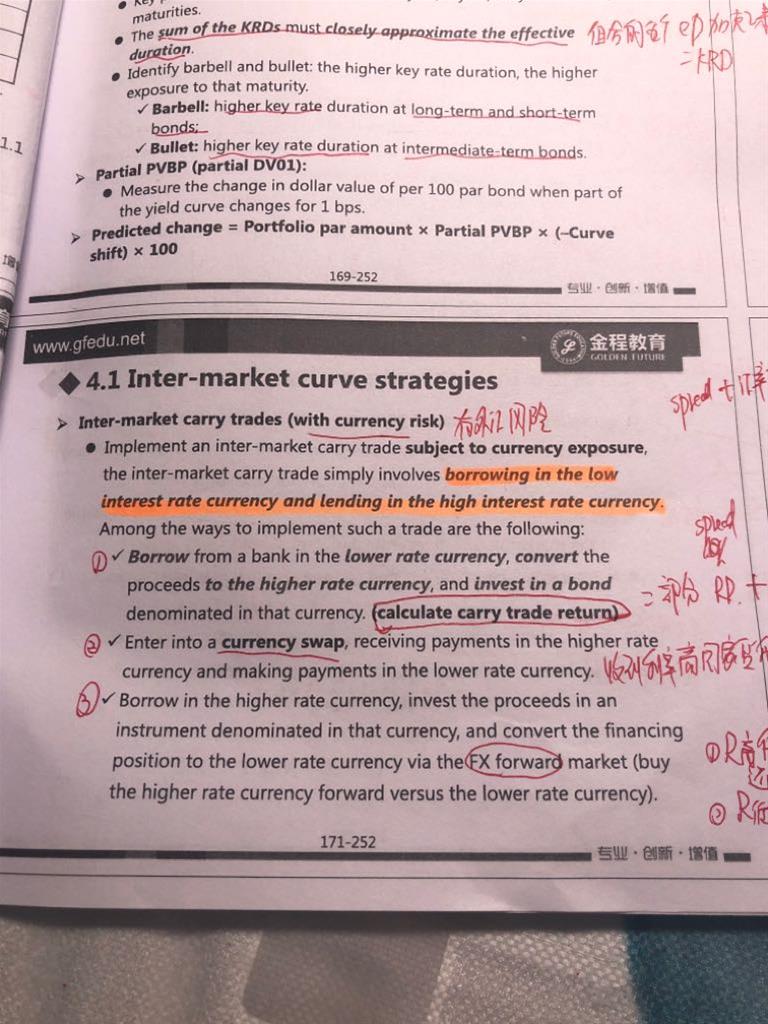 maturities.
The sum of the KRDs must closely approximate the effective
duration.
= KRD
Identify barbell and bullet: the higher key rate duration, the higher
exposure to that maturity.
✓ Barbell: higher key rate duration at long-term and short-term
bonds;
✓ Bullet: higher key rate duration at intermediate-term bonds.
1.1
➢ Partial PVBP (partial DV01):
● Measure the change in dollar value of per 100 par bond when part of
the yield curve changes for 1 bps.
➢ Predicted change = Portfolio par amount × Partial PVBP × (–Curve
shift) × 100
169-252
专业·创新·增值
www.gfedu.net
金程教育
GOLDEN FUTURE
◆ 4.1 Inter-market curve strategies
spread +
➢ Inter-market carry trades (with currency risk) 有汇风险
● Implement an inter-market carry trade subject to currency exposure,
the inter-market carry trade simply involves borrowing in the low
interest rate currency and lending in the high interest rate currency.
Among the ways to implement such a trade are the following:
spread
① ✓ Borrow from a bank in the lower rate currency, convert the
proceeds to the higher rate currency, and invest in a bond
denominated in that currency. (calculate carry trade return)
= 部分
② ✓ Enter into a currency swap, receiving payments in the higher rate
currency and making payments in the lower rate currency.
收到利率高国家
③ ✓ Borrow in the higher rate currency, invest the proceeds in an
instrument denominated in that currency, and convert the financing
position to the lower rate currency via the FX forward market (buy
the higher rate currency forward versus the lower rate currency).
① R高
② R低
171-252
专业·创新·增值